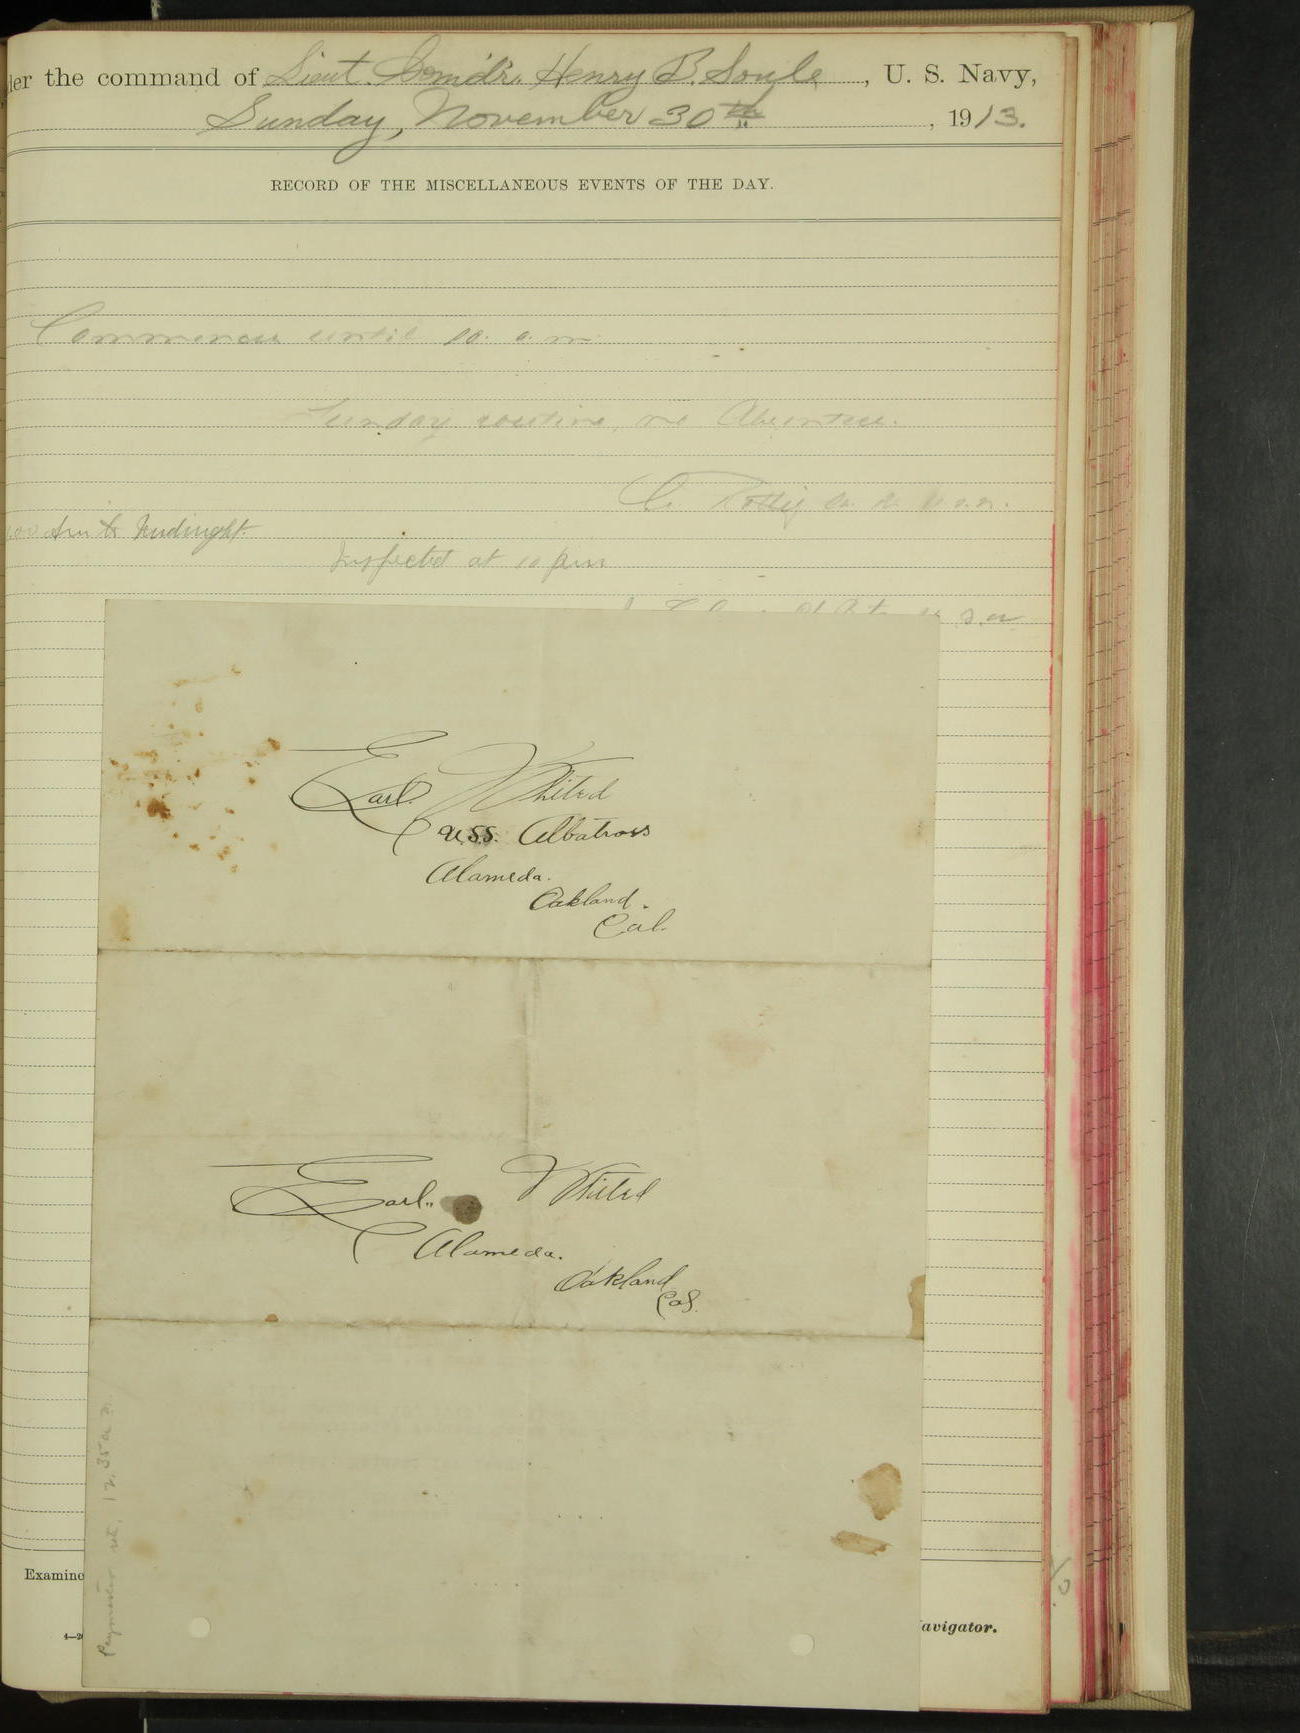 der the command of Lieut. Comdr. Henry B. Soule, U. S. Navy,
Sunday, November 30th, 1913.
RECORD OF THE MISCELLANEOUS EVENTS OF THE DAY.
Commences until 10. a.m.
Sunday routine, no Absentees.
to Midnight.
Inspected at 10 pm
Earl. Whited
U.S.S. Albatross
Alameda.
Oakland.
Cal.
Earl.. Whited
Alameda.
Oakland
Cal.
Paymaster ret. 12.35 a.m.
Examine
avigator.